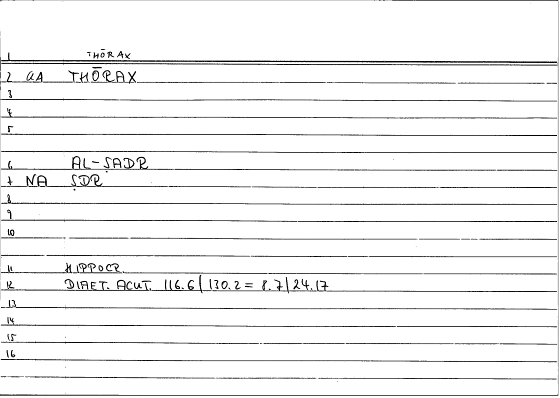 1 THŌRAX
2 GA THŌRAX
3
4
5
6 AL-ṢADR
7 NA ṢDR
8
9
10
11 HIPPOCR.
12 DIAET. ACUT. 116.6 | 130.2 = 8.7 | 24.17
13
14
15
16